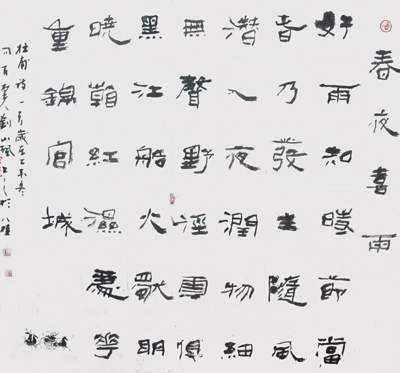 春夜喜雨
好雨知時節當
春乃發生隨風
潛入夜潤物細
無聲野徑雲俱
黑江船火獨明
曉看紅濕處花
重錦官城
杜甫詩一首歲在乙未冬
劉山